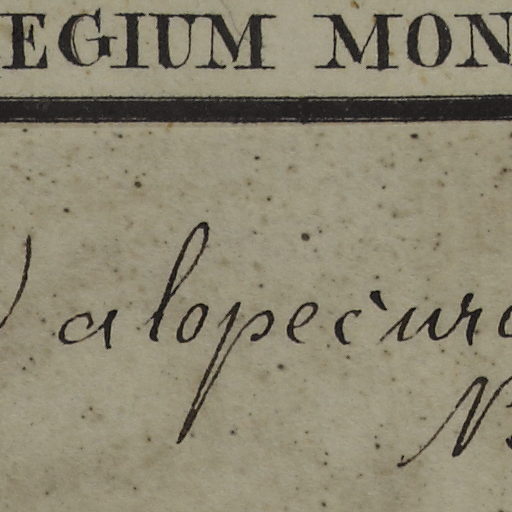 EGIUM MON
alopecur
N